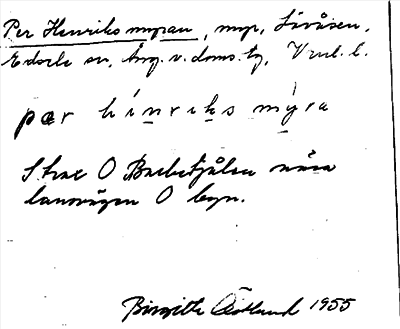 Per Henriks myran, myr, Lövåsen,
Edsele sn, Ång. v. doms. tg, Vnl. l.
pær hínriks mýra
Strax O Barbrotjälen nära
landsvägen O byn.
Birgitta Östlund 1955